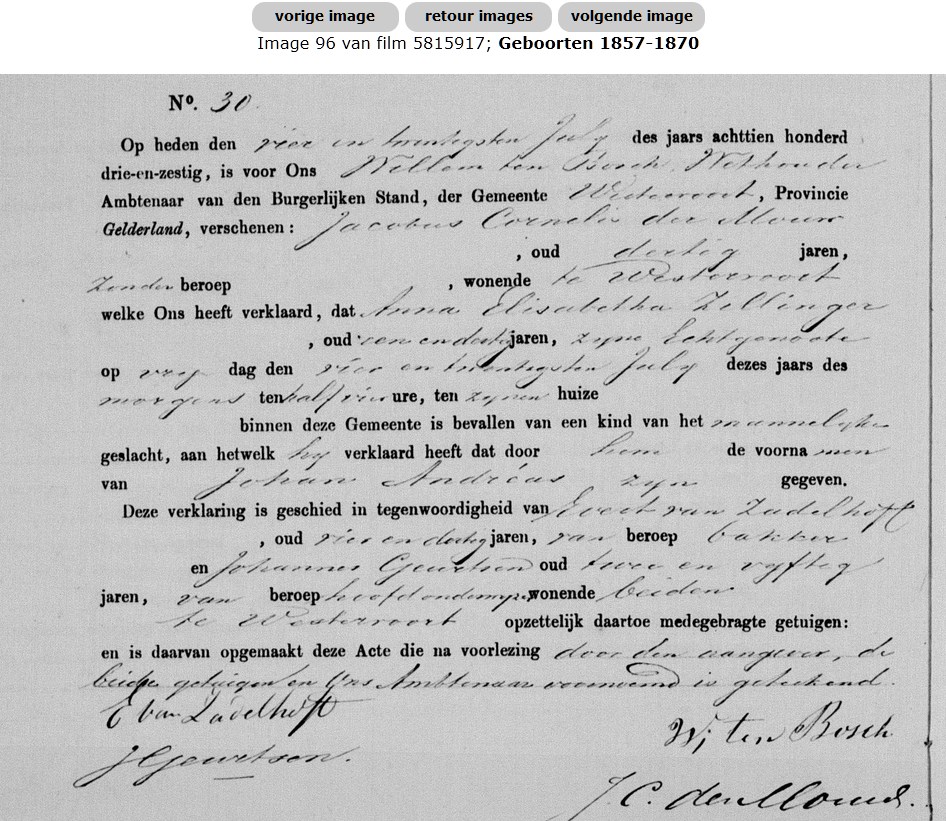 vorige image retour images volgende image
Image 96 van film 5815917; Geboorten 1857-1870
Nº. 30.
Op heden den vier en twintigsten July des jaars achttien honderd
drie-en-zestig, is voor Ons Willem ten Bosch, Wethouder
Ambtenaar van den Burgerlijken Stand, der Gemeente Westervoort, Provincie
Gelderland, verschenen: Jacobus Cornelis der Mouw
, oud dertig jaren,
Zonder beroep , wonende te Westervoort
welke Ons heeft verklaard, dat Anna Elisabetha Zillinger
, oud een en dertig jaren, zijne Echtgenoote
op vrij dag den vier en twintigsten July dezes jaars des
morgens ten half vier ure, ten zijnen huize
binnen deze Gemeente is bevallen van een kind van het mannelijke
geslacht, aan hetwelk hij verklaard heeft dat door hem de voorna men
van Johan Andréas zijn gegeven.
Deze verklaring is geschied in tegenwoordigheid van Evert van Zadelhoff
, oud vier en dertig jaren, van beroep bakker
en Johannes Geurtsen oud twee en vyftig
jaren, van beroep hoofdonderwijzer, wonende beiden
te Westervoort opzettelijk daartoe medegebragte getuigen:
en is daarvan opgemaakt deze Acte die na voorlezing door den aangever, de
beide getuigen en Ons Ambtenaar voornoemd is geteekend.
E van Zadelhoff
W, ten Bosch
J Geurtsen.
J. C. der Mouw.